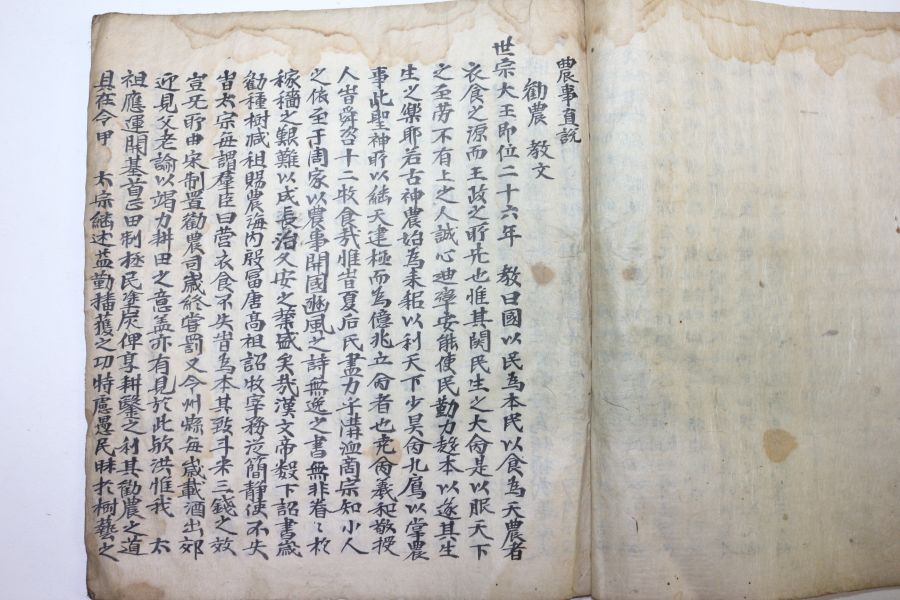 農事直說
勸農 敎文
世宗大王即位二十六年 敎曰國以民為本民以食為天農者
衣食之源而王政之所先也惟其関民生之大命是以服天下
之至劳不有上之人誠心迪率安能使民勤力趍本以遂其生
生之樂耶若古神農始為耒耜以利天下少昊命九扈以掌農
事此聖神所以継天建極而為億兆立命者也尭命羲和敬授
人旹舜咨十二牧食哉惟旹夏后氏盡力乎溝洫商宗知小人
之依至于周家以農事開國豳風之詩無逸之書無非眷〻於
稼穡之艱難以成長治久安之業盛矣哉漢文帝数下詔書歳
勧種樹减租賜農海内殷冨唐高祖詔牧宰務従簡静使不失
旹太宗每謂羣臣曰营衣食不失旹為本其致斗米三錢之效
豈旡所由宋制置勸農司歳終賞罰又令州縣每歳載酒出郊
迎見父老諭以竭力耕田之意盖亦有見於此欤洪惟我 太
祖應運開基首正田制拯民塗炭俾享耕鑿之利其勸農之道
具在令甲 太宗継述益勤播獲之功特慮愚民昧於樹藝之